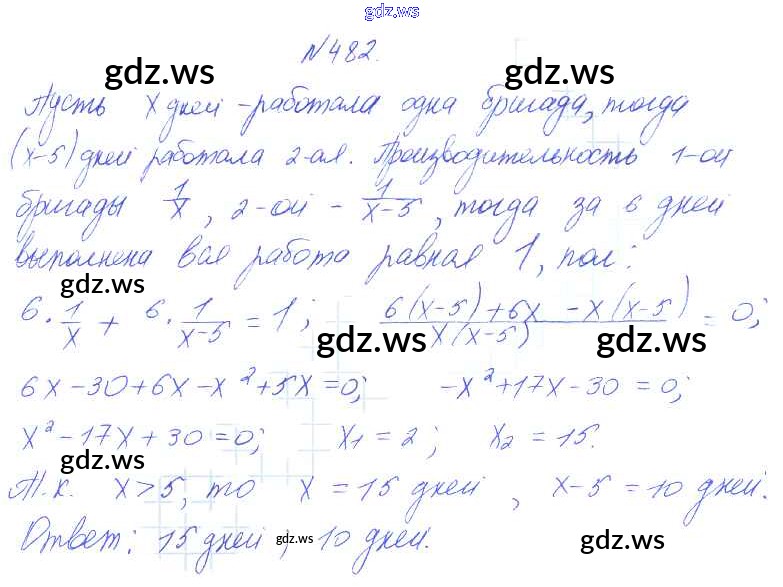 gdz.ws
№482.
gdz.ws gdz.ws
Пусть x дней - работала одна бригада, тогда
(x-5) дней работала 2-ая. Производительность 1-ой
бригады 1/x, 2-ой - 1/(x-5), тогда за 6 дней
выполнена вся работа равная 1, пол:
gdz.ws
6·1/x + 6·1/(x-5) = 1; (6(x-5)+6x-x(x-5))/(x(x-5)) = 0;
gdz.ws gdz.ws
6x-30+6x-x²+5x=0; -x²+17x-30=0;
x²-17x+30=0; x₁=2; x₂=15.
gdz.ws
Т.к. x>5, то x=15 дней, x-5=10 дней.
Ответ: 15 дней, 10 дней.
gdz.ws gdz.ws